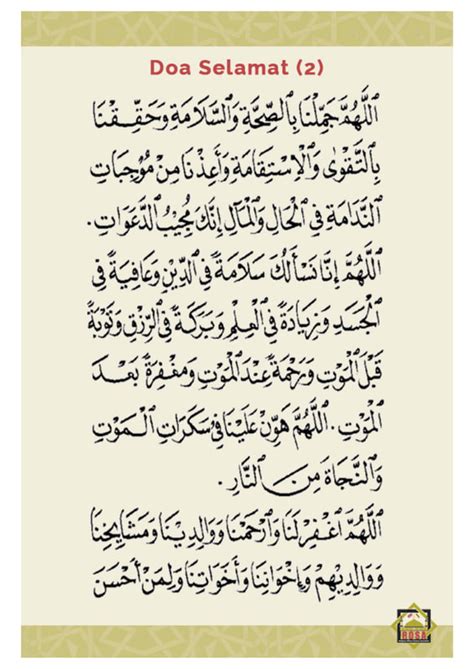 Doa Selamat (2)
اَللّٰهُمَّ جَمِّلْنَا بِالصِّحَّةِ وَالسَّلَامَةِ وَحَقِّقْنَا
بِالتَّقْوٰى وَالْاِسْتِقَامَةِ وَأَعِذْنَا مِنْ مُوْجِبَاتِ
النَّدَامَةِ فِي الْحَالِ وَالْمَآلِ إِنَّكَ مُجِيْبُ الدَّعَوَاتِ.
اَللّٰهُمَّ إِنَّا نَسْأَلُكَ سَلَامَةً فِي الدِّيْنِ وَعَافِيَةً فِي
الْجَسَدِ وَزِيَادَةً فِي الْعِلْمِ وَبَرَكَةً فِي الرِّزْقِ وَتَوْبَةً
قَبْلَ الْمَوْتِ وَرَحْمَةً عِنْدَ الْمَوْتِ وَمَغْفِرَةً بَعْدَ
الْمَوْتِ. اَللّٰهُمَّ هَوِّنْ عَلَيْنَا فِي سَكَرَاتِ الْمَوْتِ
وَالنَّجَاةَ مِنَ النَّارِ.
اَللّٰهُمَّ اغْفِرْ لَنَا وَارْحَمْنَا وَوَالِدِيْنَا وَمَشَايِخِنَا
وَوَالِدِيْهِمْ وَإِخْوَانِنَا وَأَخَوَاتِنَا وَلِمَنْ أَحْسَنَ
ROSA